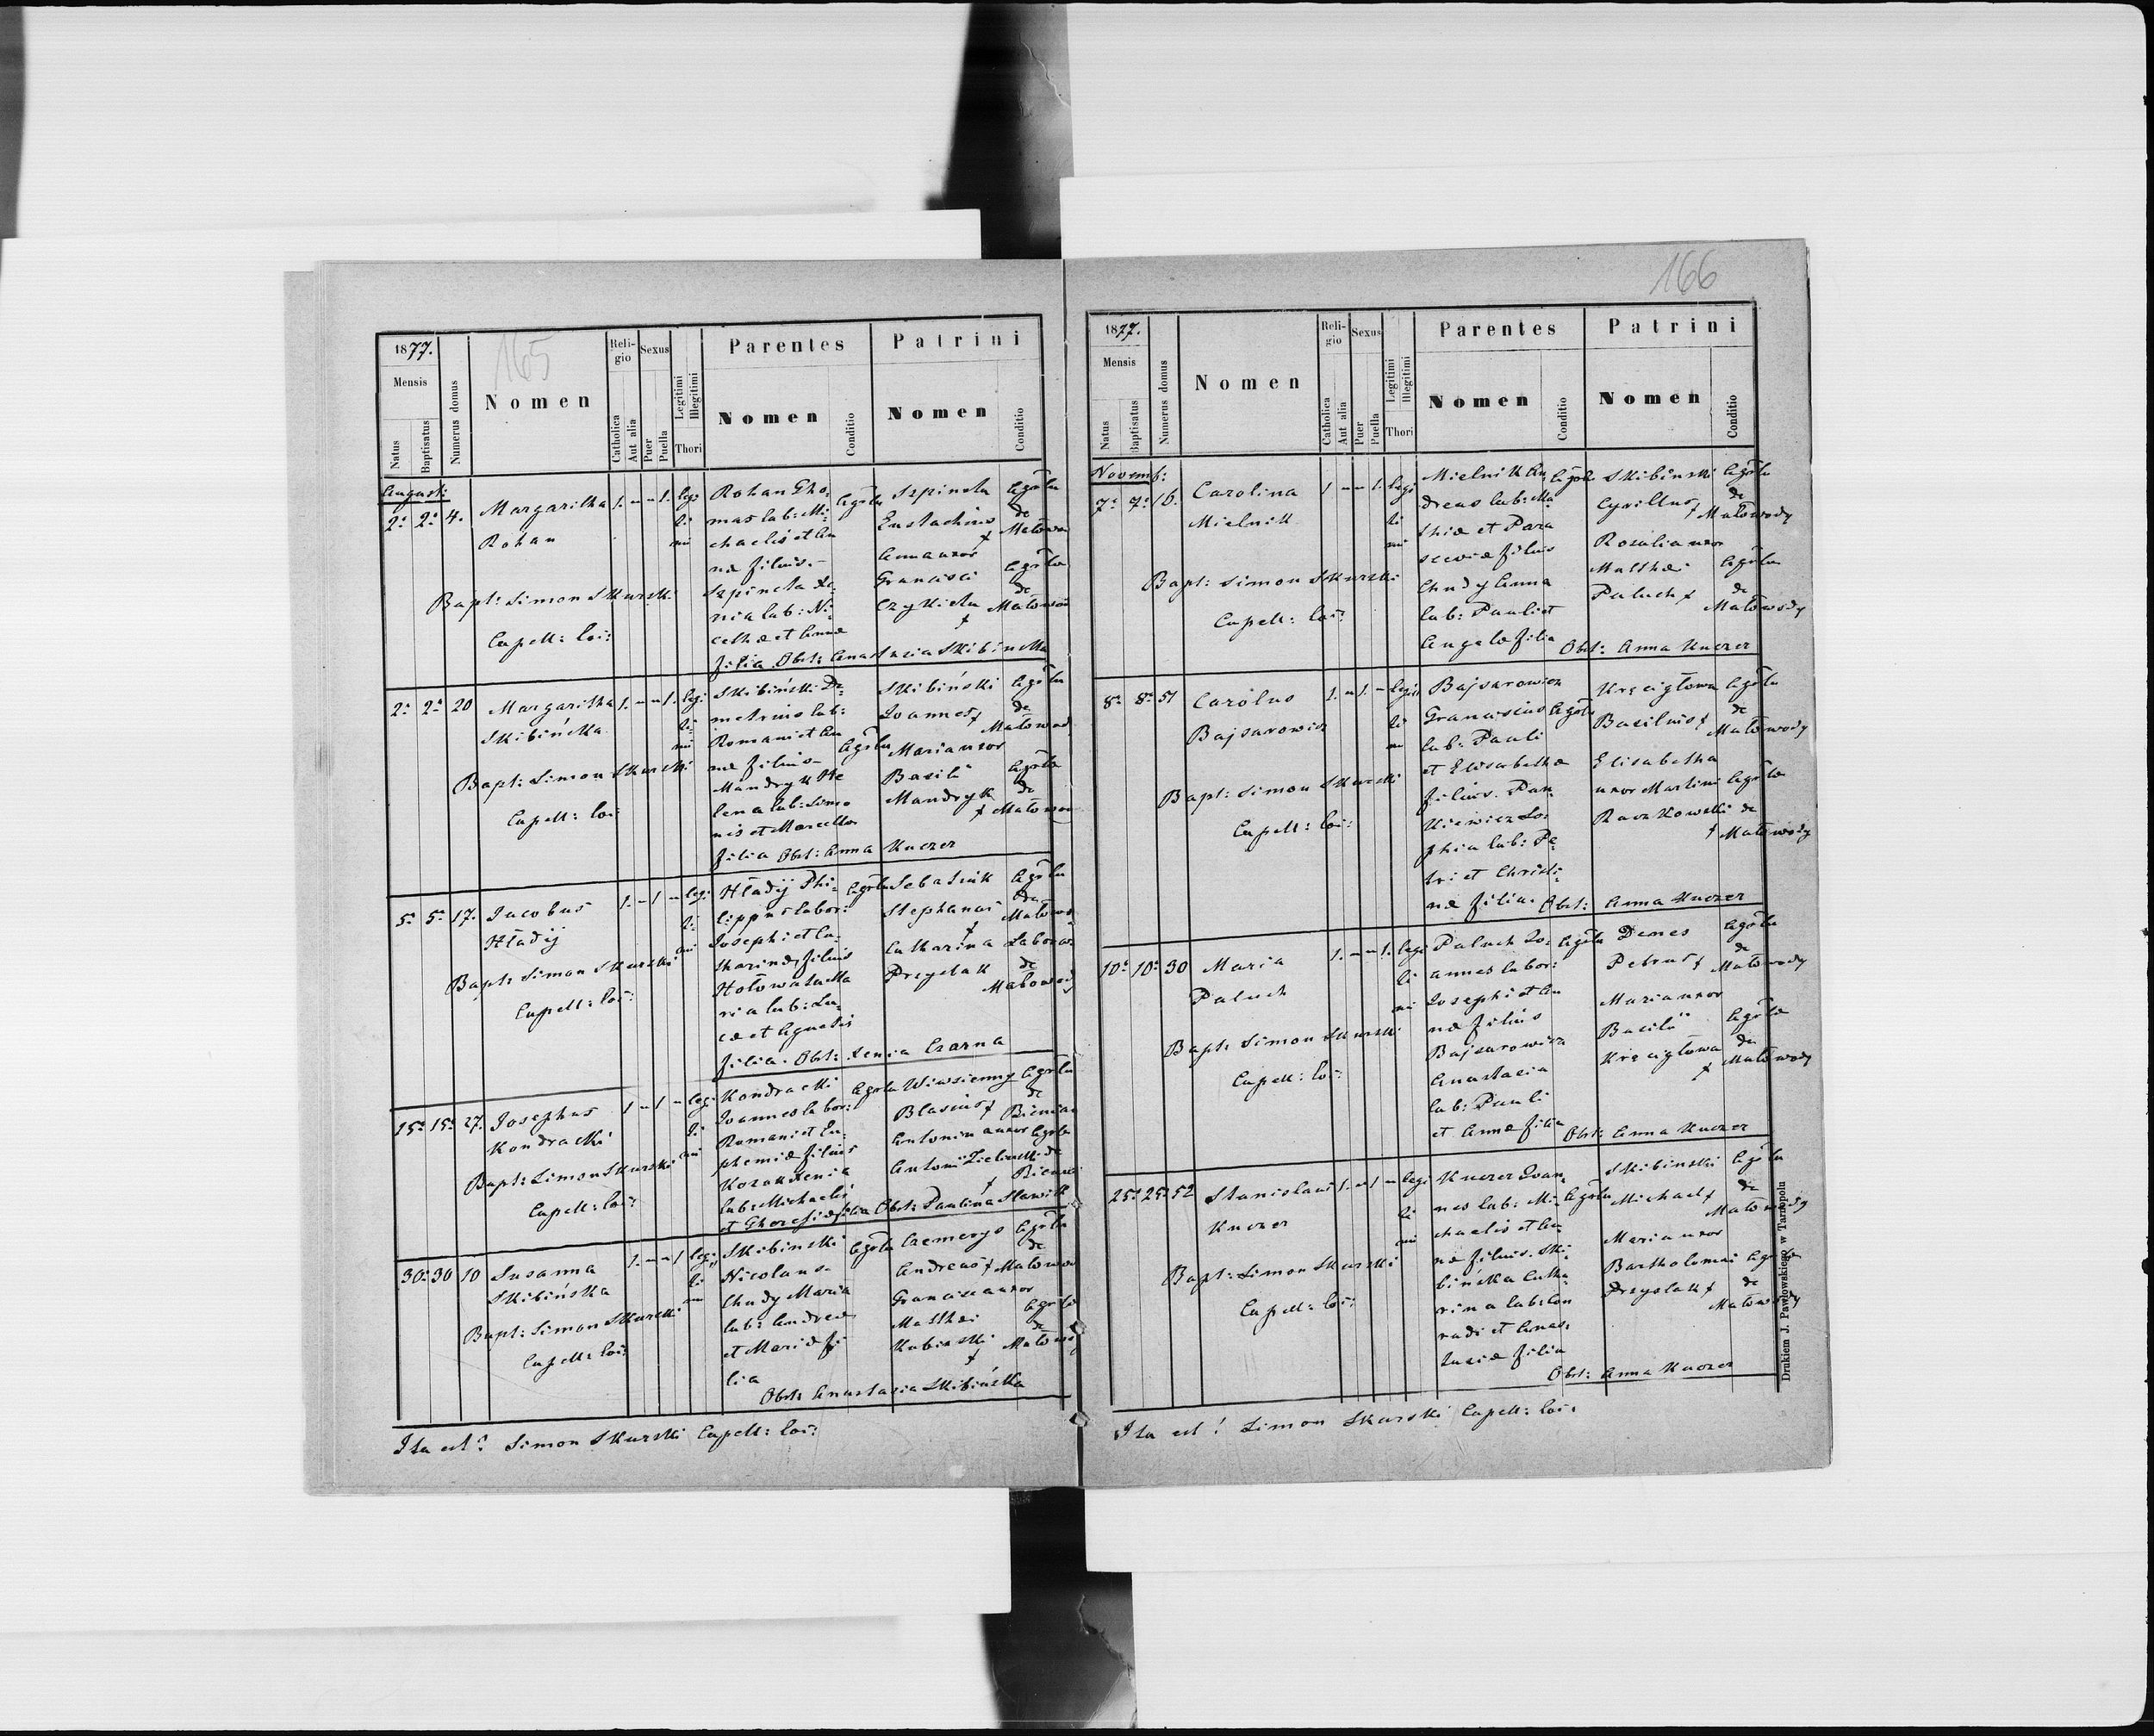 165
1877.
Mensis
Natus
Baptisatus
Numerus domus
Nomen
Religio
Catholica
Aut alia
Sexus
Puer
Puella
Legitimi
Illegitimi
Thori
Parentes
Nomen
Conditio
Patrini
Nomen
Conditio
August:
2a 2a 4. Margaritha 1. - - 1. legi
Rohan
ti
mi
Bapt: Simon Skurski
Capell: loi:
Rohan Tho,
mas lab: Mi-
chaelis et An
næ filius.-
Szpineta Xe,
nia lab: Ni-
cethæ et Annæ
filia Obst: Anastasia Skibinska
Agrla
Szpineta
Eustachius
†
Anna uxor
Francisci
Czykieta
†
Agrla
de
Małowo
Agrla
de
Małowod
2a 2a 20 Margaritha 1. - - 1. legi
Skibińska
ti
mi
Bapt: Simon Skurski
Capell: loi:
Skibiński De
metrius lab:
Romani et An
næ filius-
Mandryk He
lena lab: Simo
nis et Marcellæ
filia Obst: Anna Kuczer
Agrla
Skibiński
Ioannes †
Maria uxor
Basilii
Mandryk
†
Agrla
de
Małowod
Agrla
de
Małowo
5a 5a 17. Iacobus 1. - 1 - legi
Hładij
ti
mi
Bapt: Simon Skurski
Capell: loi:
Hładij Phi-
lippus labor:
Iosephi et Ca-
tharinæ filius
Hołowatu Ma
ria lab: Lu-
cæ et Agnetis
filia. Obst: Xenia Czarna
Agrla
Sebastiuk
Stephanus
†
Catharina
Przysłak
Agrla
de
Małowo
Labor
de
Małowod
15a 15a 27. Iosephus 1 - 1 - legi
Kondracki
ti
mi
Bapt: Simon Skurski
Capell: loi:
Kondracki
Ioannes labor:
Romani et Eu-
phemiæ filius
Kozak Xenia
lab: Michaelis
et Theresiæ filia Obst: Paulina Sławik
Agrla
Wiwsienny
Blasius †
Antonina uxor
Antoni Zielinski
†
Agrla
de
Bieniaw
Agrla
de
Bieniaw
30a 30 10 Susanna 1. - - 1 legi
Skibińska
ti
mi
Bapt: Simon Skurski
Capell: loi:
Skibinski
Nicolaus-
Chudy Maria
lab: Andreæ
et Mariæ fi
lia
Obst: Anastasia Skibińska
Agrla
Czemerys
Andreas †
Francisca uxor
Matthæi
Kubinski
†
Agrla
de
Małowod
Agrla
de
Małowod
Ita est! Simon Skurski Capell: loi:
166
1877.
Mensis
Natus
Baptisatus
Numerus domus
Nomen
Religio
Catholica
Aut alia
Sexus
Puer
Puella
Legitimi
Illegitimi
Thori
Parentes
Nomen
Conditio
Patrini
Nomen
Conditio
Novemb:
7a 7a 16. Carolina 1 - - 1. legi
Mielnik
ti
mi
Bapt: Simon Skurski
Capell: loi:
Mielnik An
dreas lab: Ma
thiæ et Para
sceviæ filius
Chudy Anna
lab: Pauli et
Angelæ filia Obst: Anna Kuczer
Agrla
Skibinski
Cyrillus †
Rosalia uxor
Matthæi
Paluch †
Agrla
de
Małowody
Agrla
de
Małowody
8a 8a 51 Carolus 1. - 1. - legi
Bajsarowicz
ti
mi
Bapt: Simon Skurski
Capell: loi:
Bajsarowicz
Franciscus
lab: Pauli
et Elisabethæ
filius. Pan-
kiewicz So-
phia lab: Pe-
tri et Christi-
næ filia. Obst: Anna Kuczer
Agrla
Kręcigłowa
Basilius †
Elisabetha
uxor Martini
Raczkowski
†
Agrla
de
Małowody
Agrla
de
Małowody
10a 10a 30 Maria 1. - - 1. legi
Paluch
ti
mi
Bapt: Simon Skurski
Capell: loi:
Paluch Io-
annes labor:
Iosephi et An
næ filius
Bajsarowicz
Anastasia
lab: Pauli
et Annæ filia Obst: Anna Kuczer
Agrla
Demes
Petrus †
Maria uxor
Basilii
Kręcigłowa
†
Agrla
de
Małowody
Agrla
de
Małowody
25a 25a 52 Stanislaus 1. - 1 - legi
Kuczer
ti
mi
Bapt: Simon Skurski
Capell: loi:
Kuczer Ioan
nes lab: Mi-
chaelis et An
næ filius. Ski-
bińska Catha
rina lab: Con
radi et Anas-
tasiæ filia
Obst: Anna Kuczer
Agrla
Skibinski
Michael †
Maria uxor
Bartholomæi
Przysłak †
Agrla
de
Małowody
Agrla
de
Małowody
Ita est! Simon Skurski Capell: loi:
Drukiem J. Pawłowskiego w Tarnopolu